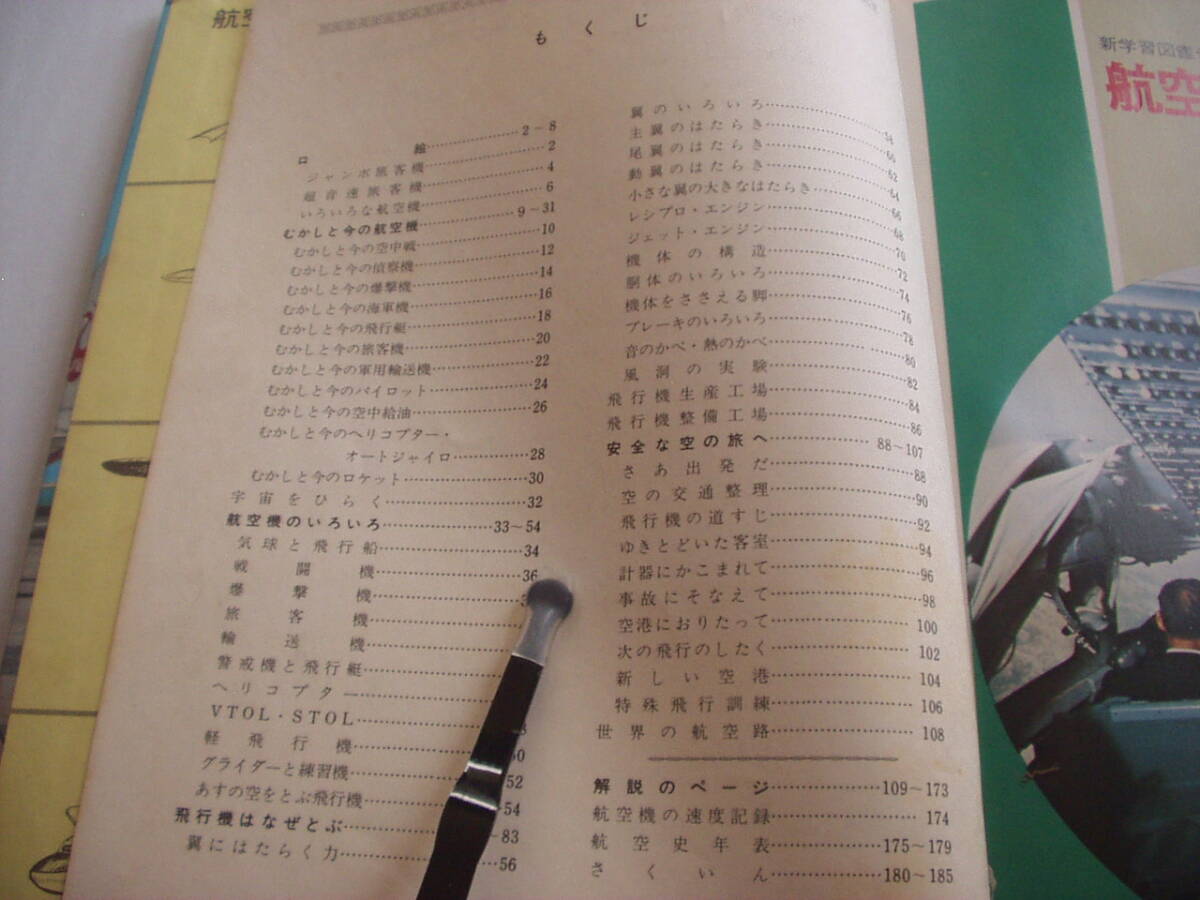 もくじ
口絵……2－8
ジャンボ旅客機……2
超音速旅客機……4
いろいろな航空機……6
むかしと今の航空機……9－31
むかしと今の空中戦……10
むかしと今の偵察機……12
むかしと今の爆撃機……14
むかしと今の海軍機……16
むかしと今の飛行艇……18
むかしと今の旅客機……20
むかしと今の軍用輸送機……22
むかしと今のパイロット……24
むかしと今の空中給油……26
むかしと今のヘリコプター・
オートジャイロ……28
むかしと今のロケット……30
宇宙をひらく……32
航空機のいろいろ……33～54
気球と飛行船……34
戦闘機……36
爆撃機……
旅客機……
輸送機……
警戒機と飛行艇……
ヘリコプター……
VTOL・STOL……
軽飛行機……50
グライダーと練習機……52
あすの空をとぶ飛行機……54
飛行機はなぜとぶ……～83
翼にはたらく力……56
翼のいろいろ……58
主翼のはたらき……60
尾翼のはたらき……62
動翼のはたらき……64
小さな翼の大きなはたらき……66
レシプロ・エンジン……68
ジェット・エンジン……70
機体の構造……72
胴体のいろいろ……74
機体をささえる脚……76
ブレーキのいろいろ……78
音のかべ・熱のかべ……80
風洞の実験……82
飛行機生産工場……84
飛行機整備工場……86
安全な空の旅へ……88～107
さあ出発だ……88
空の交通整理……90
飛行機の道すじ……92
ゆきとどいた客室……94
計器にかこまれて……96
事故にそなえて……98
空港におりたって……100
次の飛行のしたく……102
新しい空港……104
特殊飛行訓練……106
世界の航空路……108
解説のページ……109～173
航空機の速度記録……174
航空史年表……175～179
さくいん……180～185
新学習図鑑
航空
航空